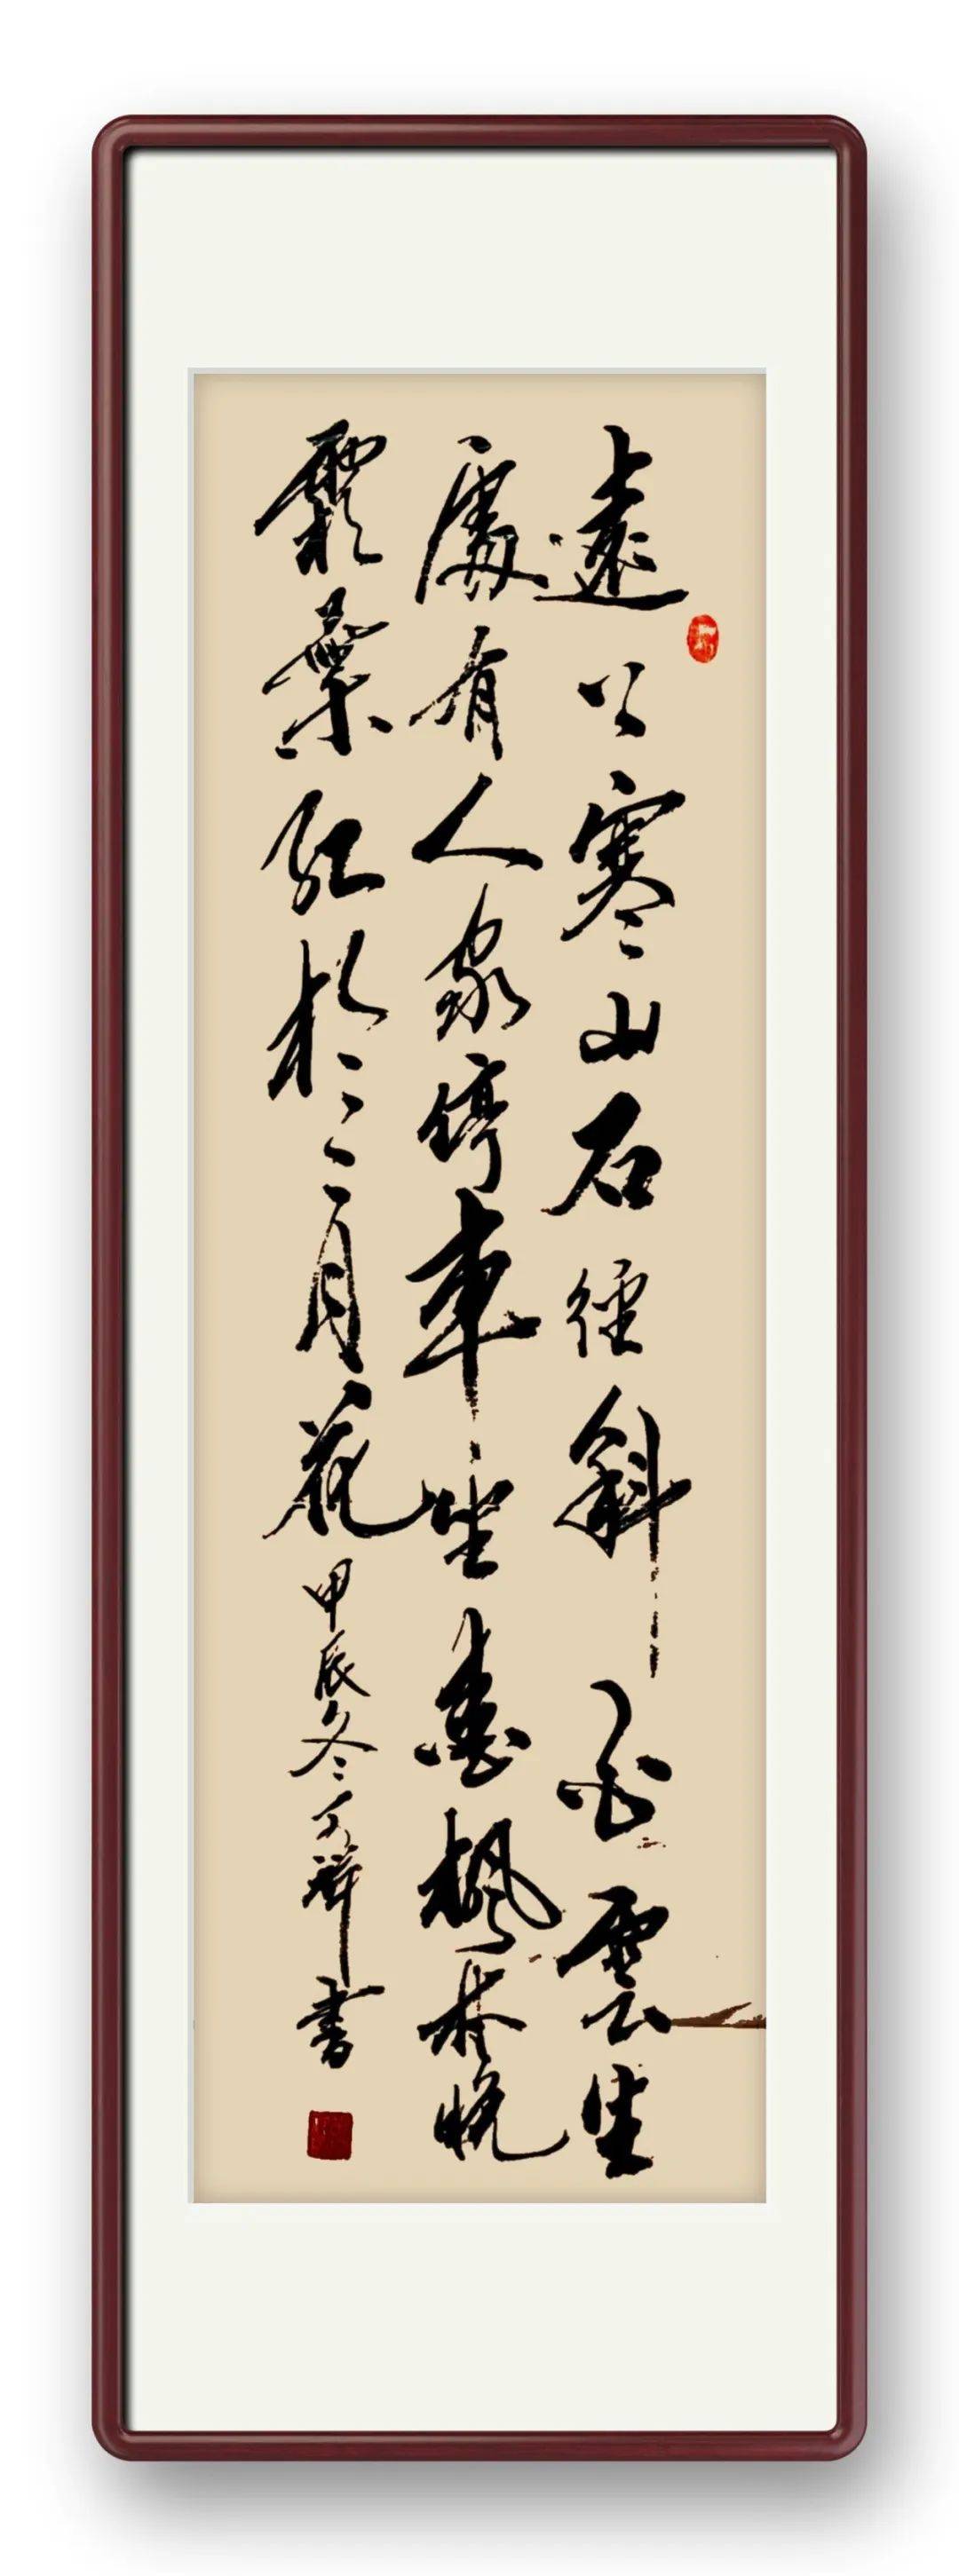 遠上寒山石徑斜白雲生
處有人家停車坐愛楓林晚
霜葉紅於二月花甲辰冬文祥書